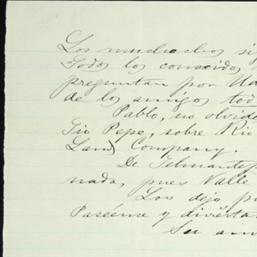 Los muchachos si
Todos los conocidos
preguntan por Ud
de los amigos tod
Pablo, no olvide
Tio Pepe, sobre Rio
Land Company.
De Telmantep
nada, pues Valle
Los dejo p
Paséense y diviertan
Su am